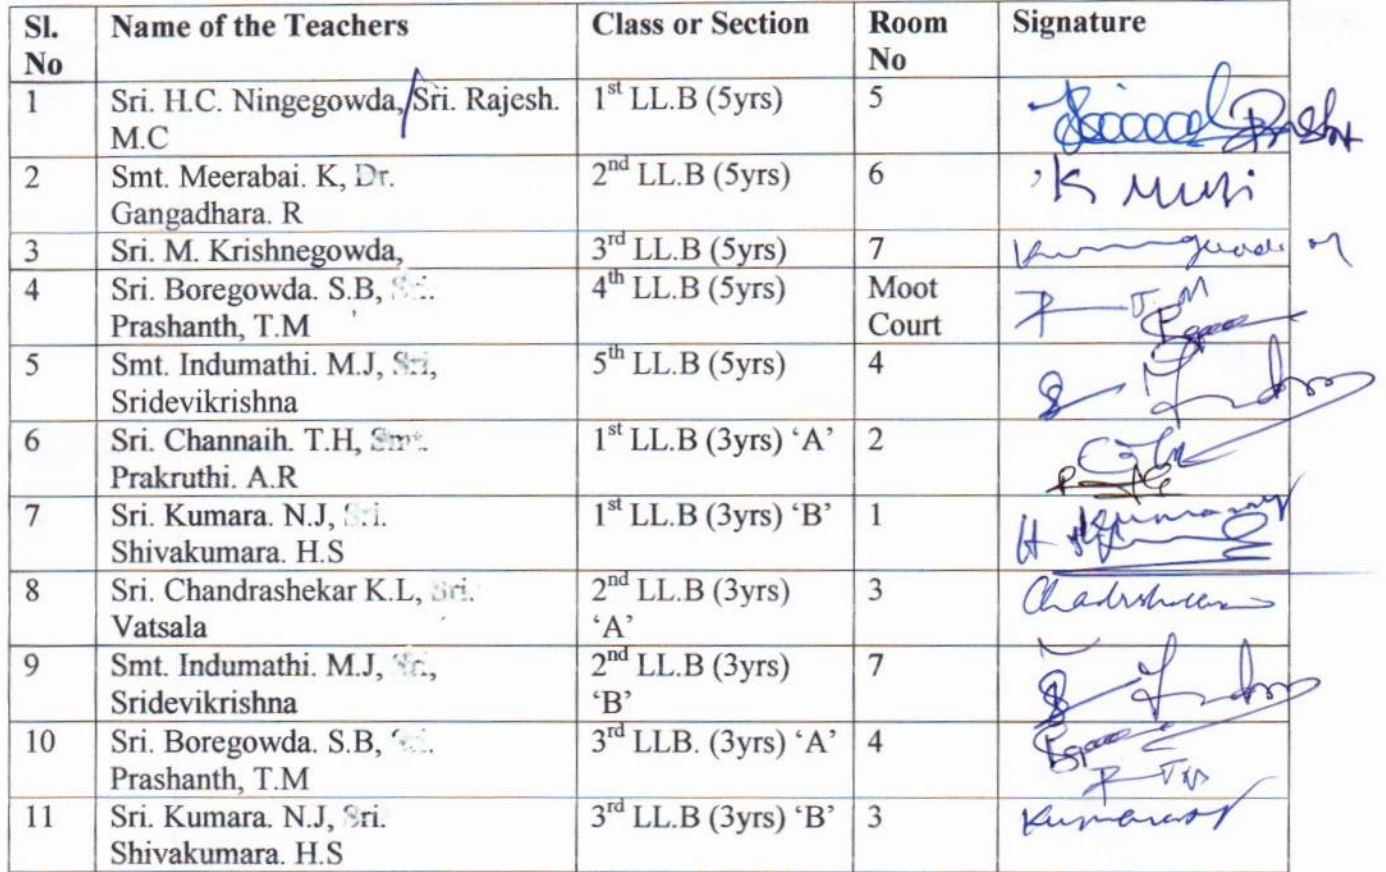 Sl. No Name of the Teachers Class or Section Room No Signature
1 Sri. H.C. Ningegowda, Sri. Rajesh. M.C 1st LL.B (5yrs) 5
2 Smt. Meerabai. K, Dr. Gangadhara. R 2nd LL.B (5yrs) 6
3 Sri. M. Krishnegowda, 3rd LL.B (5yrs) 7
4 Sri. Boregowda. S.B, Sri. Prashanth, T.M 4th LL.B (5yrs) Moot Court
5 Smt. Indumathi. M.J, Sri, Sridevikrishna 5th LL.B (5yrs) 4
6 Sri. Channaih. T.H, Smt. Prakruthi. A.R 1st LL.B (3yrs) ‘A’ 2
7 Sri. Kumara. N.J, Sri. Shivakumara. H.S 1st LL.B (3yrs) ‘B’ 1
8 Sri. Chandrashekar K.L, Sri. Vatsala 2nd LL.B (3yrs) ‘A’ 3
9 Smt. Indumathi. M.J, Sri, Sridevikrishna 2nd LL.B (3yrs) ‘B’ 7
10 Sri. Boregowda. S.B, Sri. Prashanth, T.M 3rd LLB. (3yrs) ‘A’ 4
11 Sri. Kumara. N.J, Sri. Shivakumara. H.S 3rd LL.B (3yrs) ‘B’ 3